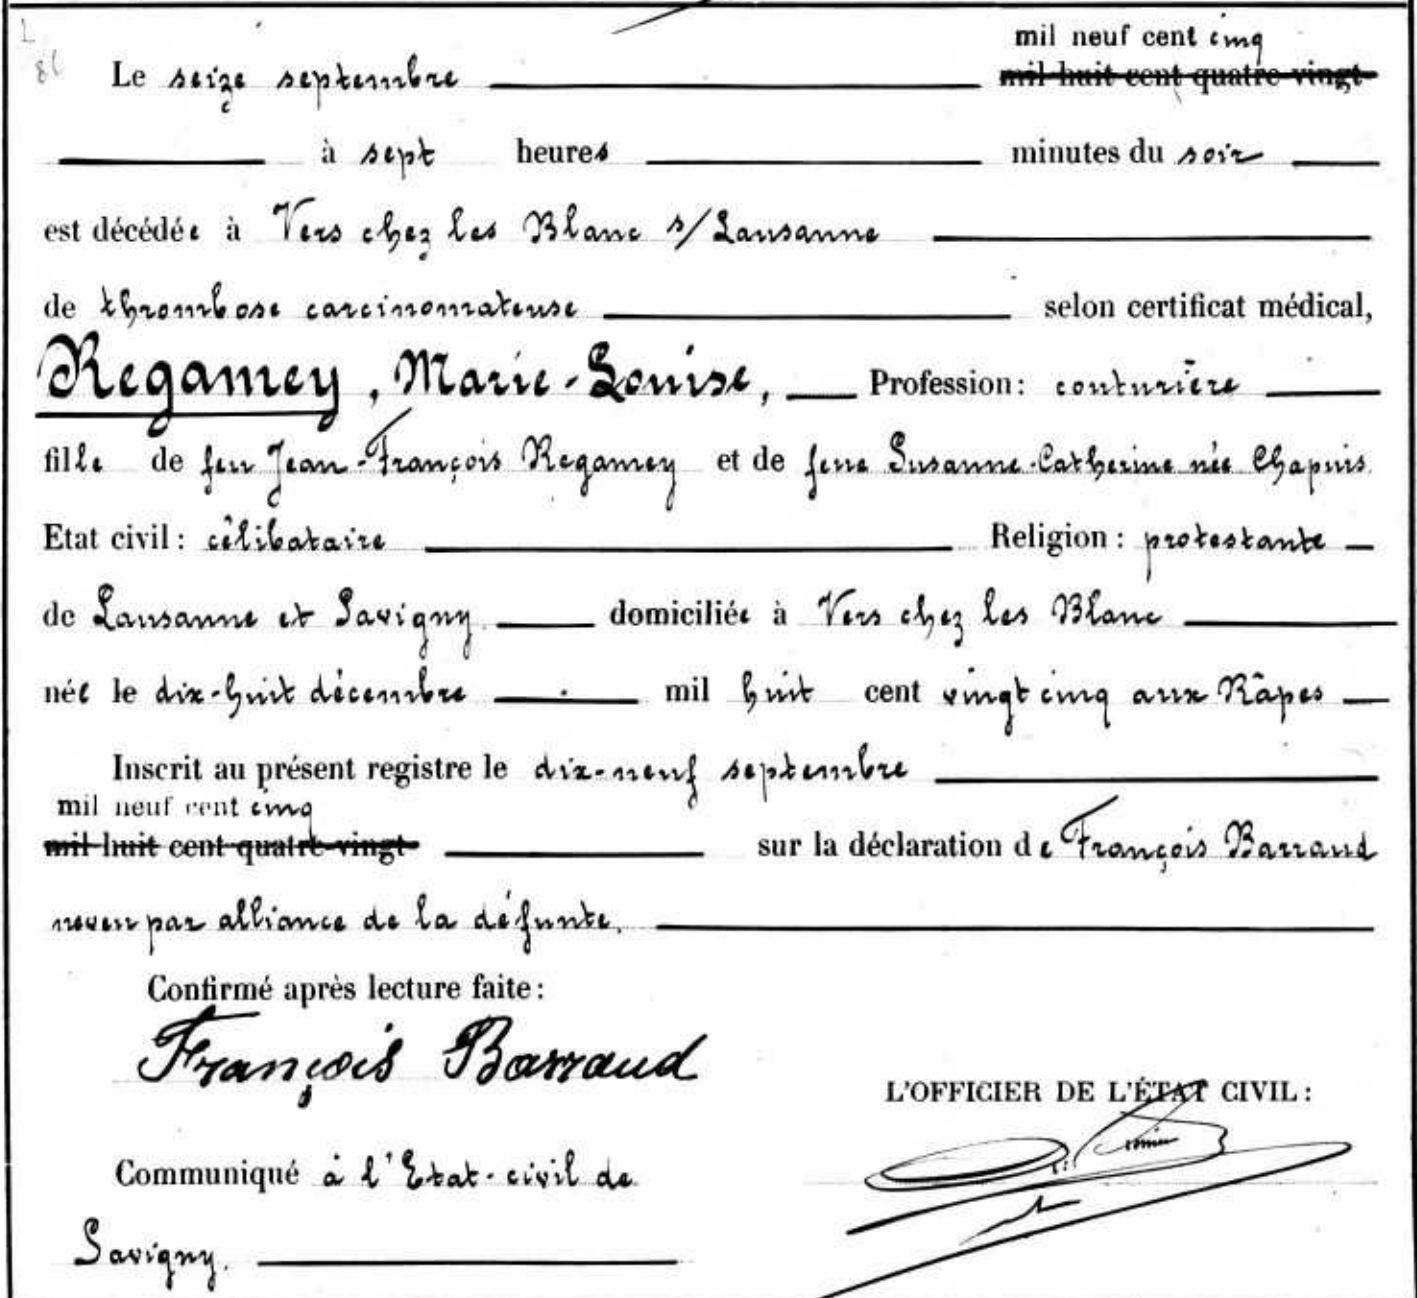 mil neuf cent cinq
Le seize septembre mil huit cent quatre-vingt-
à sept heures minutes du soir
est décédée à Vers chez les Blanc s/Lausanne
de thrombose carcinomateuse selon certificat médical,
Regamey, Marie-Louise, Profession: couturière
fille de feu Jean-François Regamey et de feue Susanne-Catherine née Chapuis.
Etat civil: célibataire Religion: protestante
de Lausanne et Savigny. domiciliée à Vers chez les Blanc
née le dix-huit décembre mil huit cent vingt cinq aux Râpes
Inscrit au présent registre le dix-neuf septembre
mil neuf cent cinq
mil huit cent quatre-vingt- sur la déclaration de François Barraud
neveu par alliance de la défunte.
Confirmé après lecture faite:
François Barraud
L'OFFICIER DE L'ÉTAT CIVIL:
Communiqué à l'Etat-civil de
Savigny.